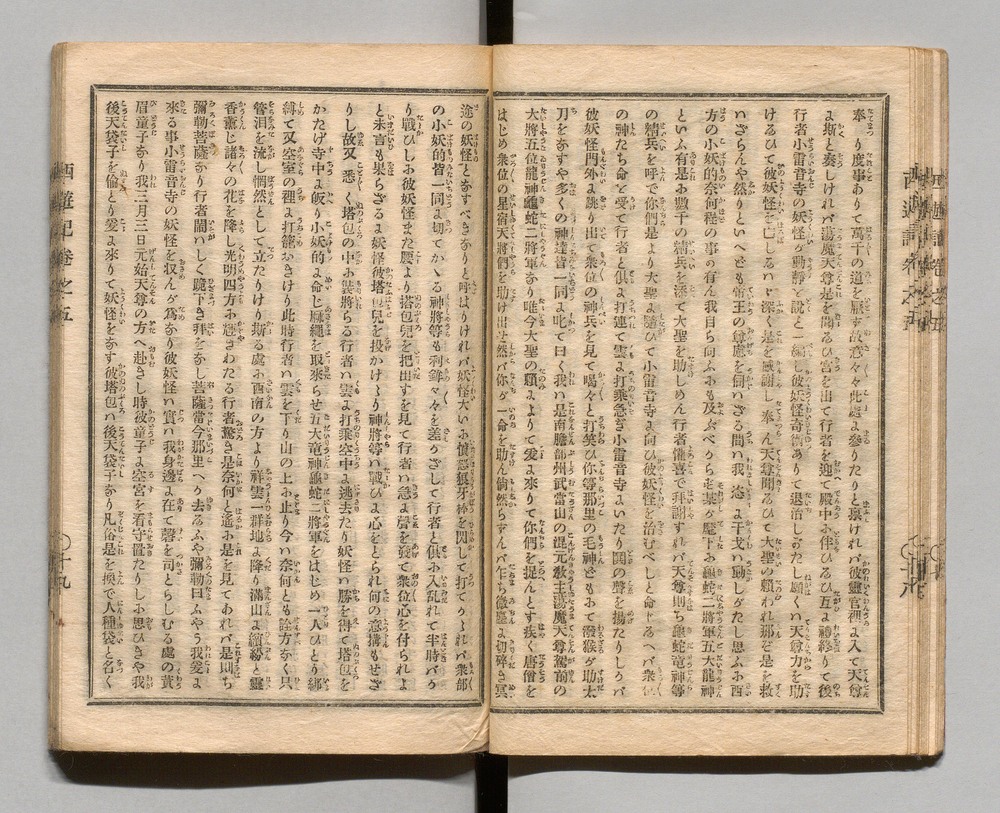 奉り度事ありて萬千の道を厭ず故意々々此處よ參りたりと禀けれバ彼靈官裡よ入て天尊
よ斯と奏しけれバ蕩魔天尊是を聞るひ宮を出て行者を迎て殿中お伴ひるひ互よ禮終りて後
行者小雷音寺の妖怪が動靜を説と一編し彼妖怪奇術ありて退治しおたし願くハ天尊力を助
けるひて彼妖怪を亡しるハヾ深く是を感謝し奉ん天尊聞るひて大聖の頼われ那ぞ是を救
いざらんや然りといへども帝王の尊慮を伺いざる間ハ我恣よ干戈を動しがたし思ふお西
方の小妖的奈何程の事の有ん我自ら向ふおも及ぶべからず某が麾下お龜蛇二將軍五大龍神
といふ有是お數千の精兵を添て大聖を助しめん行者懽喜で拜謝すれバ天尊則ち龜蛇竜神等
の精兵を呼で你們是より大聖よ隨ひて小雷音寺よ向ひ彼妖怪を治むべしと命じるへバ衆
の神たち命を受て行者と倶よ打連て雲よ打乗急ぎ小雷音寺よいたり圍の聲を揚たりしりバ
彼妖怪門外よ跳り出て衆位の神兵を見て喝々と打笑ひ你等那里の毛神どもおて潑猴が助太
刀をなすや多くの神達皆一同よ叱て曰く我ハ是南膽部州武當山の混元教主蕩魔天尊駕前の
大將五位龍神龜蛇二將軍なり唯今大聖の願よよりて爰よ來りて你們を捉んとす疾く唐僧を
はじめ衆位の星宿天將們を助け出せ然バ你が一命を助ん倘然らずんバ乍ち微塵よ切碎き冥
途の妖怪となすべきなりと呼はりければ妖怪大いお憤怒狼牙棒を閃して打てかゝれバ衆部
の小妖的皆一同よ切てかゝる神將等も利鋒々々を差かざして行者と倶お入乱れて半時バり
り戰ひしお彼妖怪また腰より搭包兒を把出すを見て行者ハ急よ聲を發て衆位心を付られよ
と未言も果らざるよ妖怪彼塔包兒を投かけゝり神將等ハ戰ひよ心をとられ何の意搆もせざ
りし故又悉く塔包の中お裝將らる行者ハ雲よ打乘空中よ逃去たり妖怪ハ勝を得て塔包を
かたげ寺中よ皈り小妖的よ命じ麻繩を取來らせ五大竜神龜蛇二將軍をはじめ一人ひとり綁
縛て又空室の裡よ打籠おきけり此時行者ハ雲を下り山の上お止り今ハ奈何とも詮方なく只
管泪を流し惘然として立たりけり斯る處お西南の方より祥雲一群地よ降り滿山よ繽紛と靈
香薫じ諸々の花を降し光明四方お赫きわたる行者驚き是奈何と遙お是を見てあれバ是則ち
彌勒菩薩なり行者鬧はしく跪下き拜をなし菩薩當今那里へり去るふや彌勒曰ふやう我爰よ
來る事小雷音寺の妖怪を収んが爲なり彼妖怪ハ實ハ我身邊よ在て磬を司とらしむる處の黄
眉童子なり我三月三日元始天尊の方へ赴きし時彼童子よ空宮を看守置たりしお思ひきや我
後天袋子を偷とり爰よ來りて妖怪をなす彼塔包ハ後天袋子なり凡俗是を換で人種袋と名く
西遊記卷之五
十九